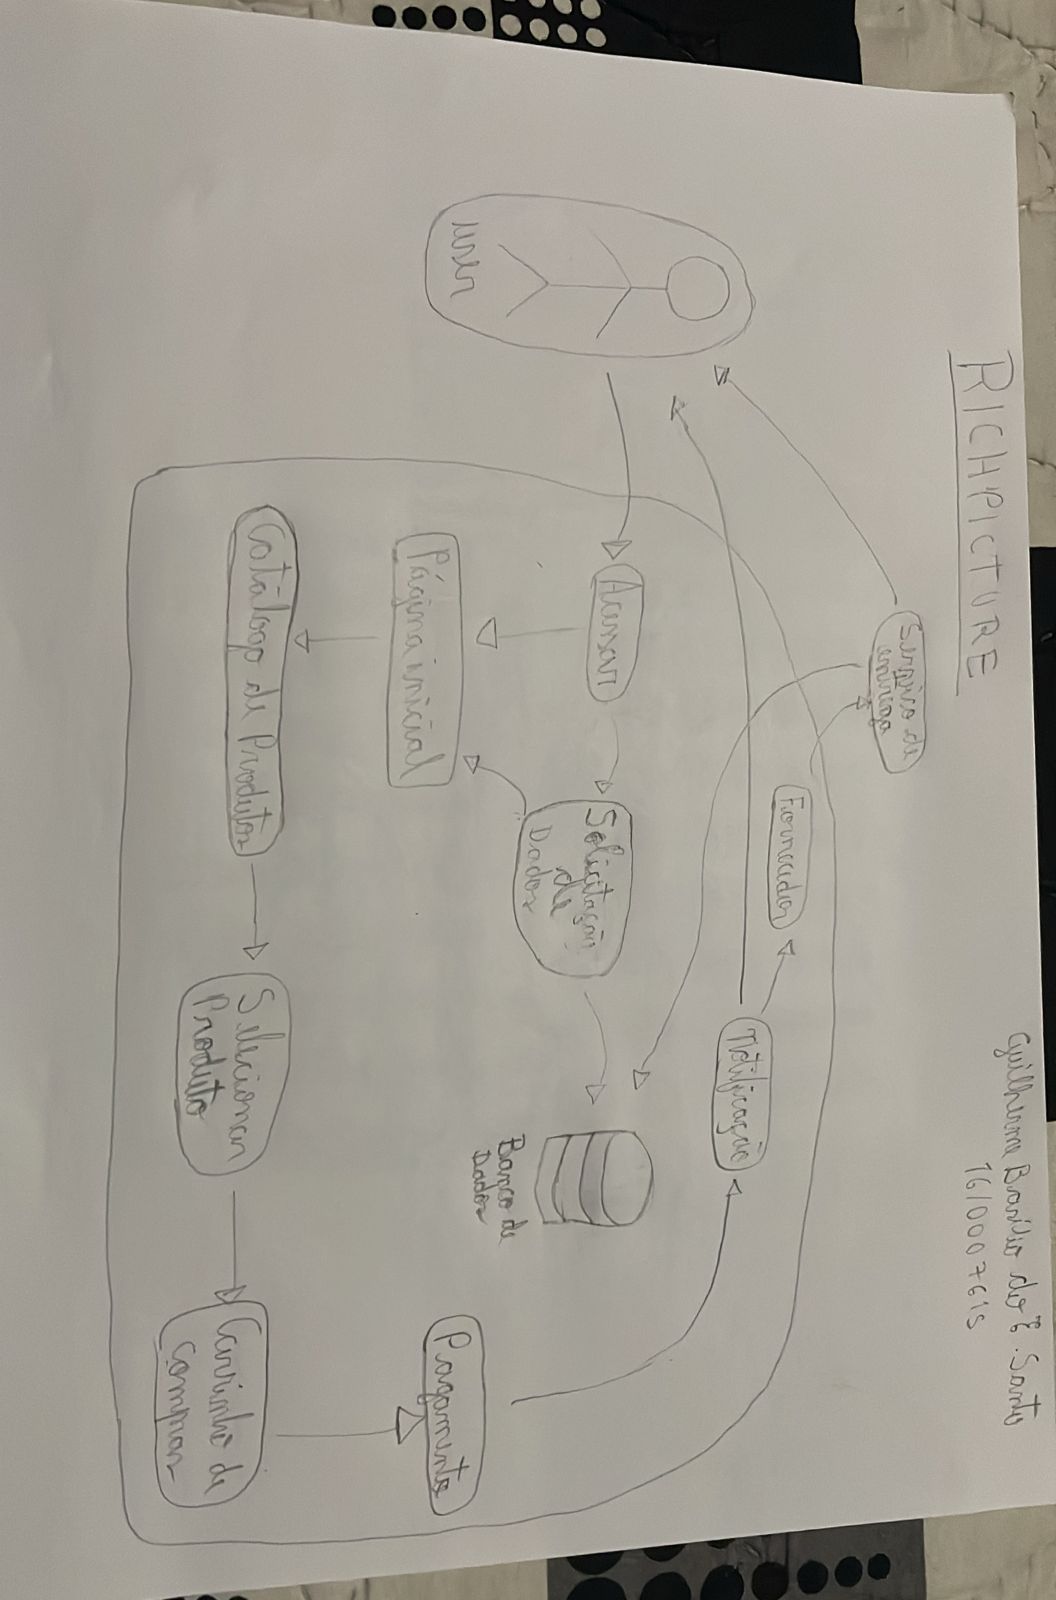 RICHPICTURE
Guilherme Brasílio do E. Santo
16/0007615
Serviço de
entrega
Fornecedor
Notificação
Acessar
Solicitação
de
Dados
Banco de
Dados
user
Página inicial
Pagamento
Catálogo de Produtos
Selecionar
Produto
Carrinho de
compras